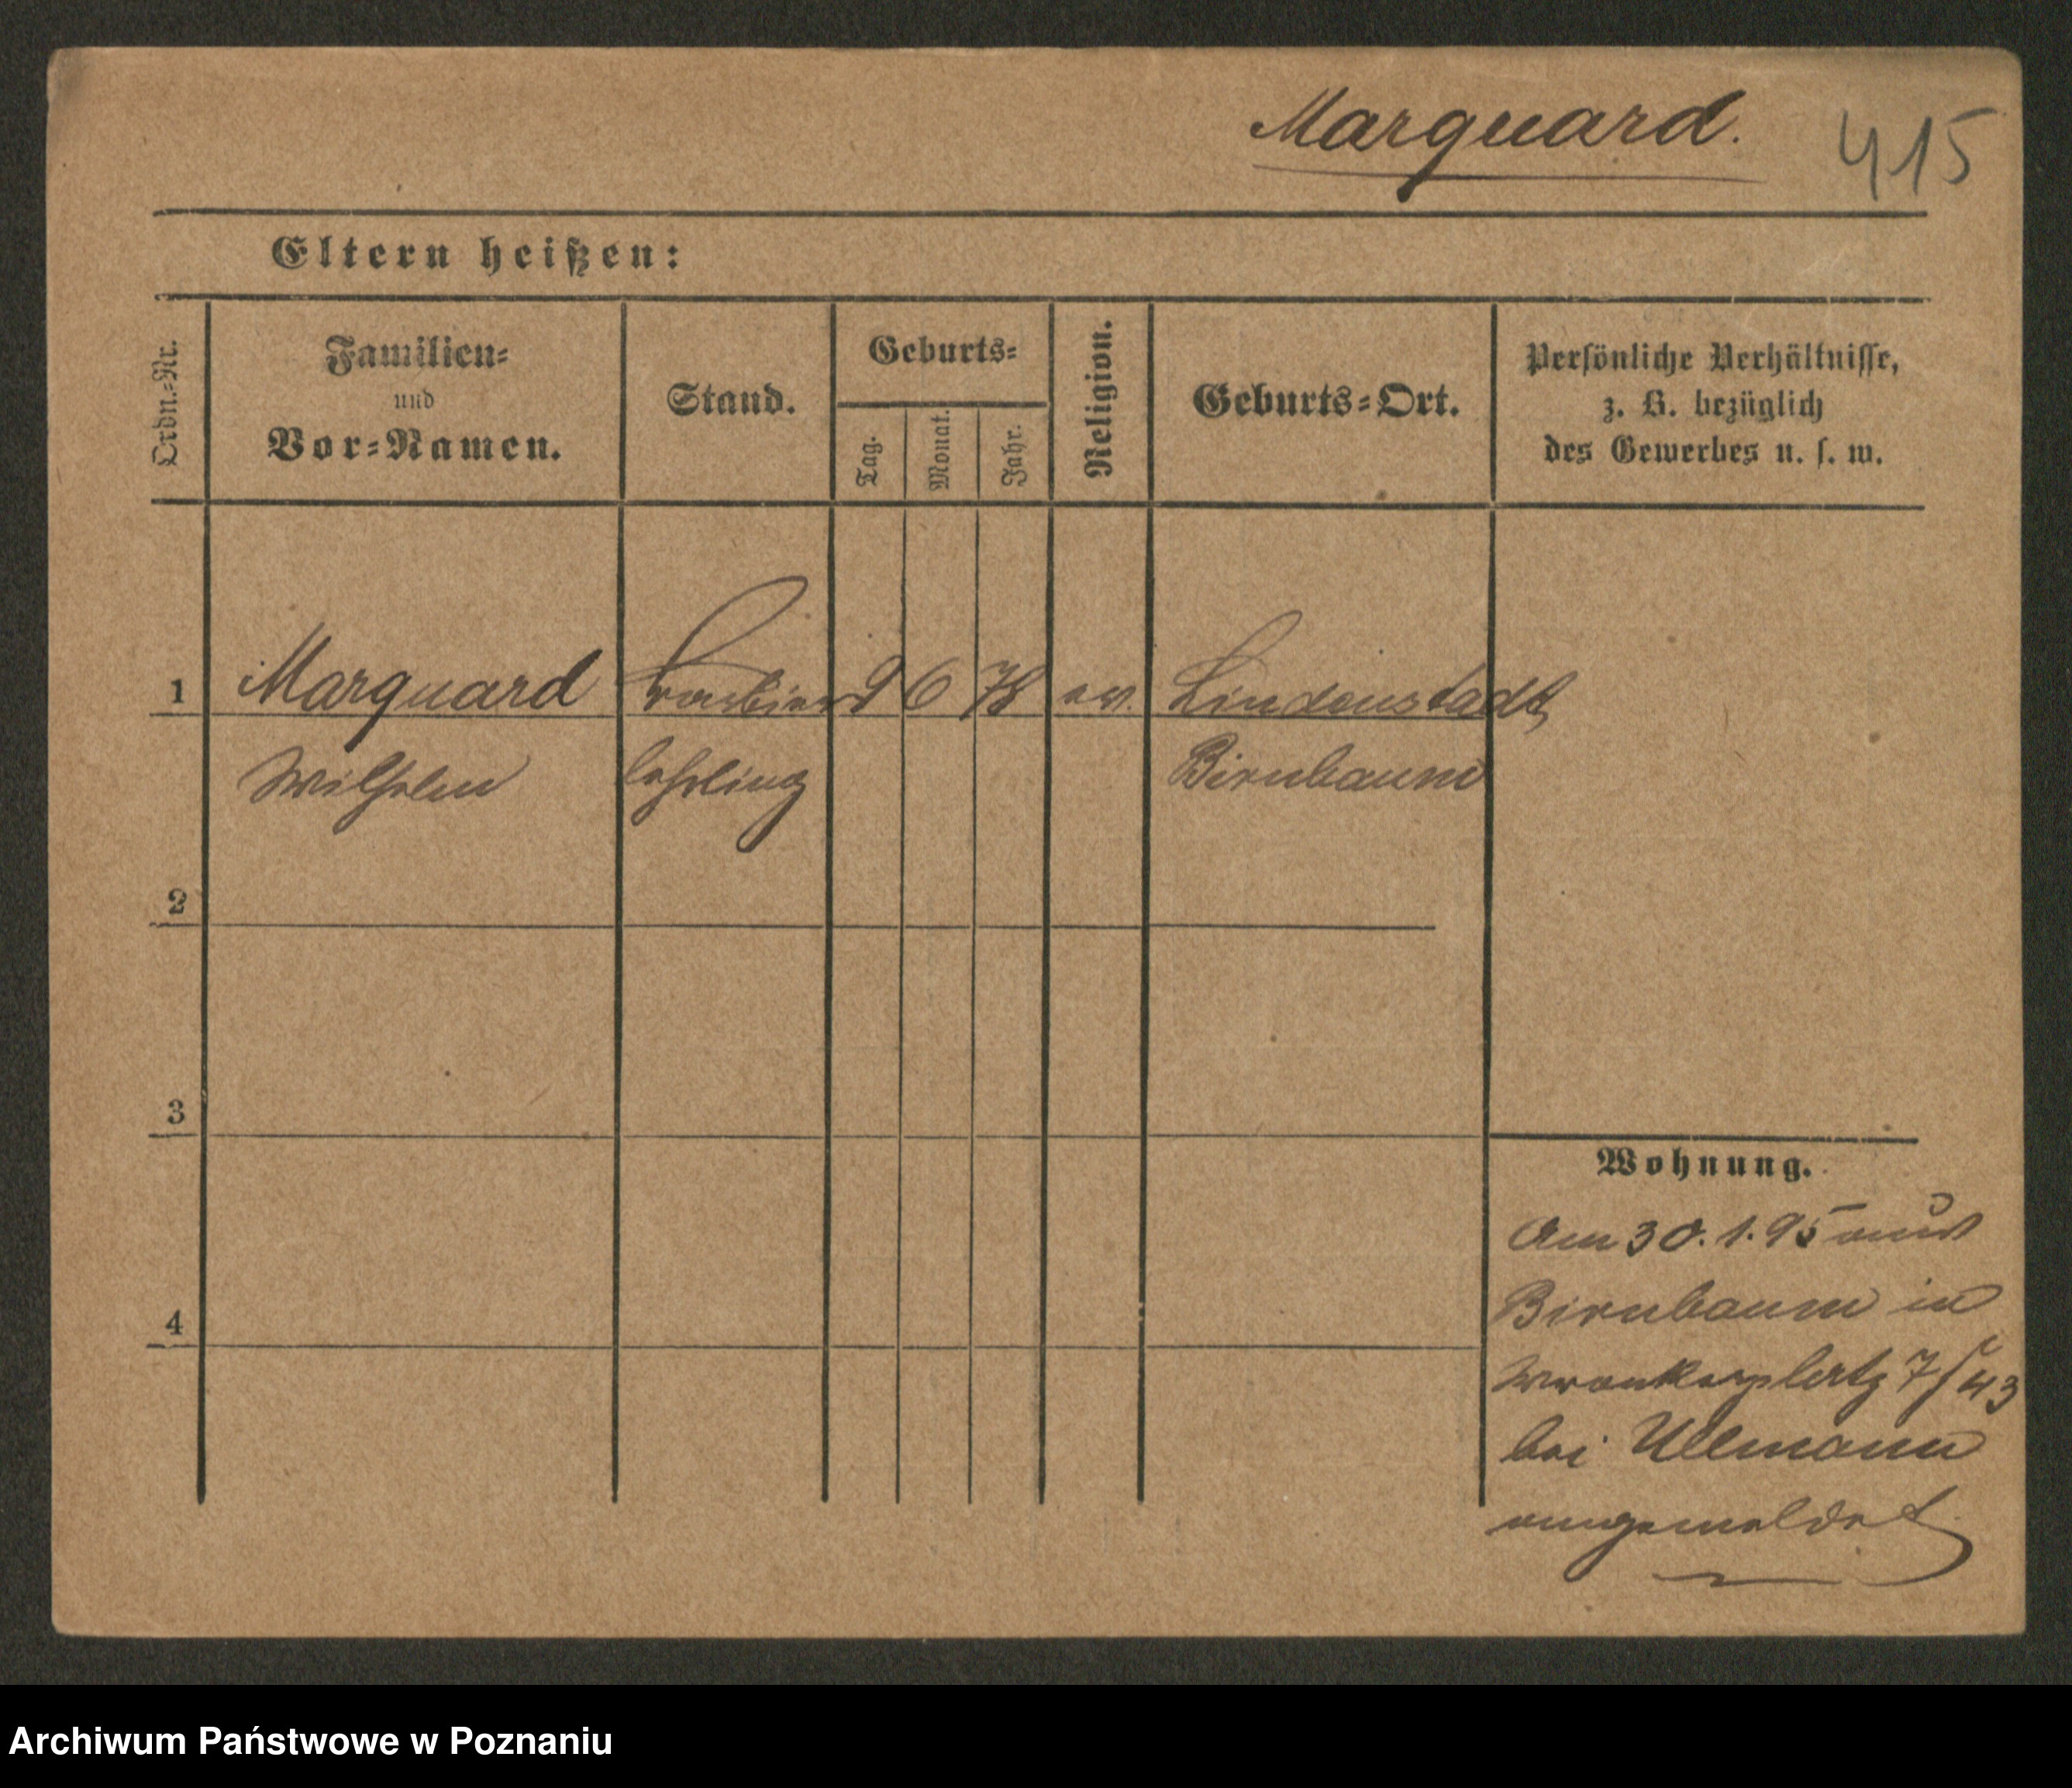 Marquard.
415
Eltern heißen:
Ordn.=Nr.
Familien=
und
Vor=Namen.
Stand.
Geburts=
Tag.
Monat.
Jahr.
Religion.
Geburts=Ort.
Persönliche Verhältnisse,
z. B. bezüglich
des Gewerbes u. s. w.
1 Marquard 9 6 78 ev. Lindenstadt
Wilhelm lehrling Birnbaum
2
3
4
Wohnung.
Am 30.1.95 aus
Birnbaum in
Wronkerplatz 7/43
bei Ullmann
angemeldet
Archiwum Państwowe w Poznaniu